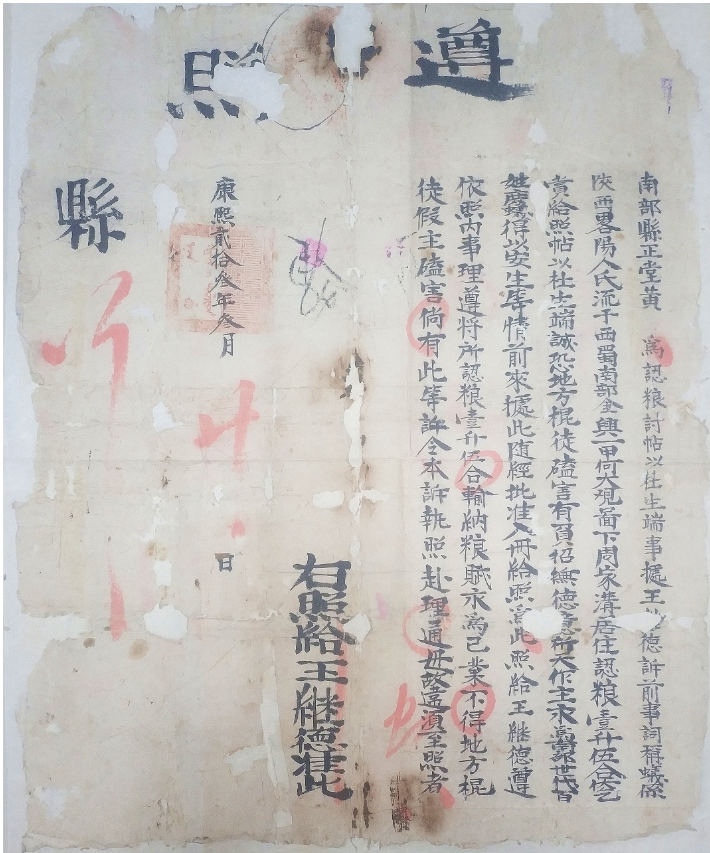 遵照
南部縣正堂黄 為認粮討帖以杜生端事據王继德訴前事詞稱蟻係
陝西畧陽人氏流于西蜀南部金興一甲何大現啚下周家溝居住認粮壹升伍合懇乞
賞給照帖以杜生端誠恐地方棍徒磕害有負招撫德意祈天作主永世代百
姓慶得以安生等情前來據此随經批准入册給照為此照給王継德遵
依照内事理遵将所認粮壹升伍合輸納粮賦永為己業不得地方棍
徒假主磕害倘有此等許令本訴執照赴理通毋故違須至照者
右照給王継德准此
康熙貳拾叁年叁月 日
縣